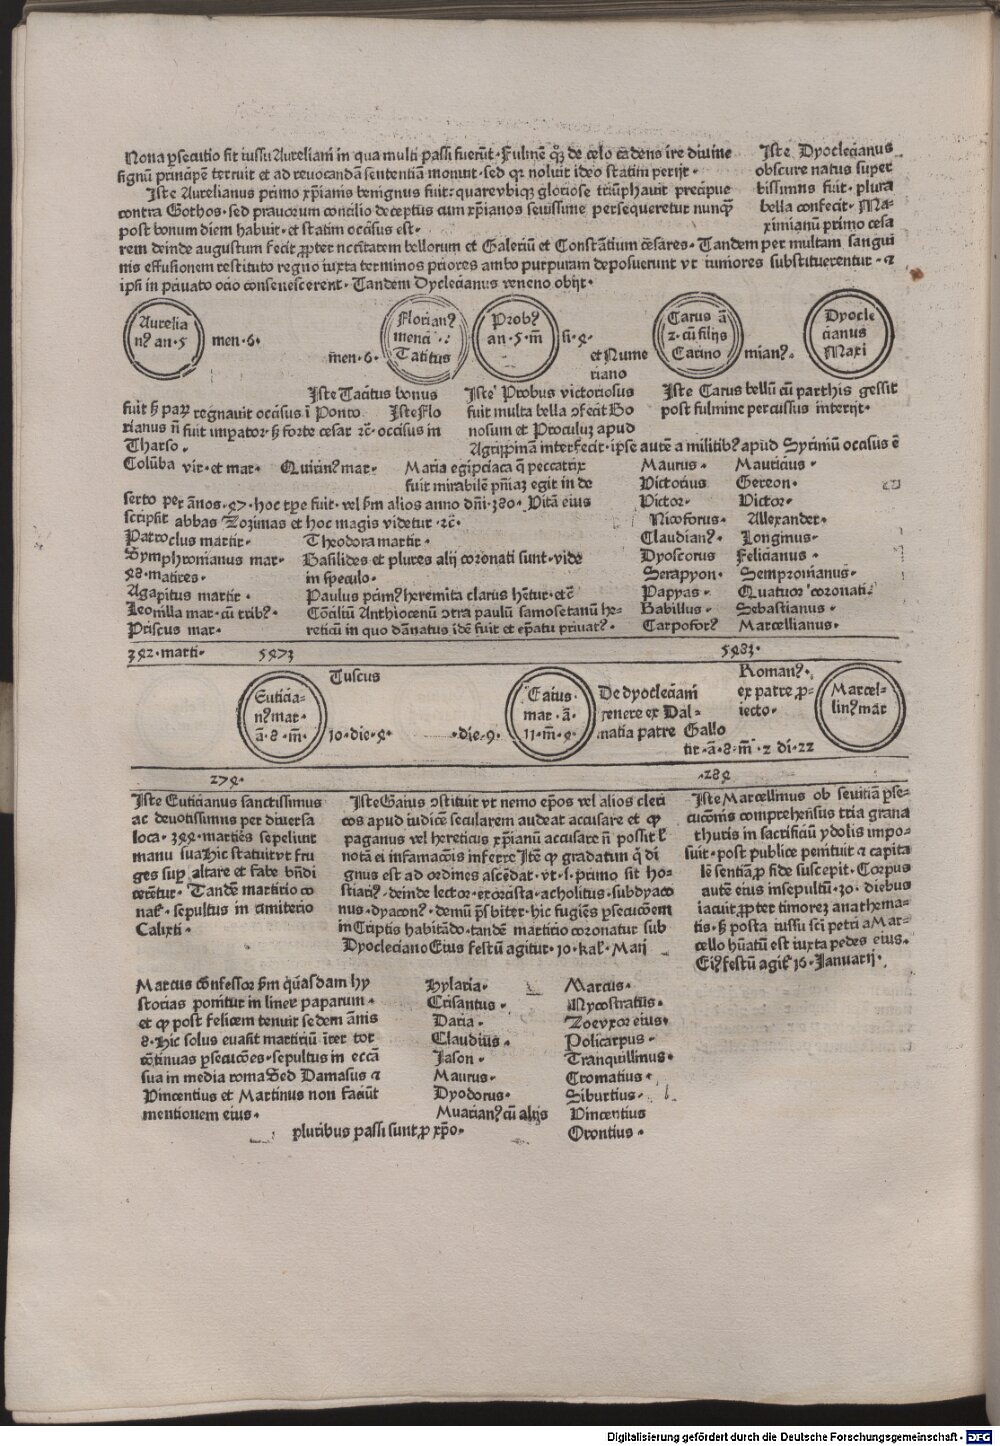 Nona ꝑsecutio fit iussu Aureliani in qua multi passi fuerūt · Fulmē qꝫ de celo cadens ire diuine
signū principē terruit et ad reuocandā sententiā monuit · sed qꝛ noluit ideo statim perijt ·
Iste Aurelianus primo xp̄ianis benignus fuit · quare vbiqꝫ gloriose triūphauit precipue
contra Gothos · sed prauorum concilio deceptus cum xp̄ianos seuissime persequeretur nunqꝫ
post bonum diem habuit · et statim occisus est ·
Iste Dyoclecianus
obscure natus super
bissimus fuit · plura
bella confecit · Ma-
ximianū primo cesa
rem deinde augustum fecit ꝓpter nccitatem bellorum et Galeriū et Constātium cesares · Tandem per multam sangui
nis effusionem restituto regno iuxta terminos priores ambo purpuram deposuerunt vt iuniores substituerentur · ⁊
ipsi in priuato ocio consenescerent · Tandem Dyclecianus veneno obijt ·
Aurelia
nꝰ an · 5
men · 6 ·
m̄en · 6 ·
Florianꝰ
menci · 2
Tatitus
Probꝰ
an · 5 · m̄
si · 4 ·
et Nume
riano
Carus ā
2 · cū filijs
Carino
mianꝰ ·
Dyocle
cianus
Maxi
Iste Tacitus bonus
fuit sꝫ paꝝ regnauit occisus ī Ponto
Iste Flo
rianus n̄ fuit imꝑator · sꝫ forte cesar ⁊c̄ · occisus in
Tharso ·
Iste Probus victoriosus
fuit multa bella ꝯfecit Bo
nosum et Proculuꝫ apud
Agrippinam interfecit · ipse autē a militibꝰ apud Syrmiū occisus ē
Iste Carus bellū cū parthis gessit
post fulmine percussus interijt ·
Colūba vir · et mar · Quirinꝰ mar ·
Maria egipciaca q̄ peccatrix
fuit mirabilē pn̄iaꝫ egit in de
serto per ānos · 47 · hoc tꝑe fuit · vel sꝫm alios anno dn̄i · 380 · Vitā eius
scripsit abbas Zozimas et hoc magis videtur · ⁊c̄ ·
Patroclus martir ·
Symphronianus mar ·
48 · matires ·
Agapitus martir ·
Leonilla mar · cū tribꝰ ·
Priscus mar ·
Theodora martir ·
Basilides et plures alij coronati sunt · vide
in speculo ·
Paulus primꝰ heremita clarus hētur · et ē
Cōciliū Anthiocenū ꝯtra paulū samosetanū he-
reticū in quo dānatus idē fuit et ep̄atu priuatꝰ ·
Maurus ·
Victorius
Victor ·
Nicoforus ·
Claudianꝰ ·
Dyoscorus
Serapyon ·
Papyas ·
Babillus ·
Carpoforꝰ
Mauricius ·
Gereon ·
Victor ·
Allexander ·
Longinus ·
Felicianus ·
Sempronianus ·
Quatuor coronati ·
Sebastianus ·
Marcellianus ·
342 · marti ·
5473
5483 ·
Euticia-
nꝰ mar ·
ā · 8 · m̄ ·
Tuscus
10 · die · 4 ·
· die · 9 ·
Gaius
mar · ā ·
11 · m̄ · 4 ·
De dyocleciani
genere ex Dal-
matia patre Gallo
Romanꝰ ·
ex patre ꝓ-
iecto ·
sit · ā · 8 · m̄ · 2 di · 22
Marcel-
linꝰ mar
274 ·
· 284
Iste Euticianus sanctissimus
ac deuotissimus per diuersa
loca · 344 · martires sepeliuit
manu sua Hic statuit vt fru
ges suꝑ altare et fabe bn̄di
cerētur · Tandē martirio co
nať · sepultus in cimiterio
Calixti ·
Iste Gaius ꝯstituit vt nemo ep̄os vel alios cleri
cos apud iudicē secularem audeat accusare et qꝫ
paganus vel hereticus xp̄ianū accusare n̄ possit ł
notā ei infamacōis inferre Itē qꝫ gradatim q̄ di
gnus est ad ordines ascēdat · vt · s · primo sit ho-
stiariꝰ · deinde lector · exorcista · acholitus · subdyaco
nus · dyaconꝰ · demū p̄sbiter · hic fugiēs ꝑsecucōem
in Criptis habitādo · tandē martirio coronatur sub
Dyocleciano Eius festū agitur · 10 · kał · Maij
Iste Marcellinus ob seuitiā ꝑse-
cucōnis comprehensus tria grana
thuris in sacrificiū ydolis impo-
suit · post publice penituit ⁊ capita
lē sentiā ꝓ fide suscepit · Corpus
autē eius insepultū · 30 · diebus
iacuit ꝓpter timoreꝫ anathema-
tis · sꝫ posta iussu sci petri a Mar-
cello hūatū est iuxta pedes eius ·
Eiꝰ festū agiť 16 · Ianuarij ·
Marcus cōnfessor sꝫm q̄asdam hy
storias ponitur in linea paparum ·
et qꝫ post felicem tenuit sedem ānis
8 · Hic solus euasit martiriū īter tot
cōtinuas ꝑsecucōes · sepultus in eccā
sua in media roma Sed Damasus ⁊
Vincentius et Martinus non faciūt
mentionem eius ·
Hylaria ·
Crisantus ·
Daria ·
Claudius ·
Iason ·
Maurus ·
Dyodorus ·
Muarianꝰ cū alijs
pluribus passi sunt ꝓ xp̄o ·
Marcus ·
Nycostratus ·
Zoe vxor eius ·
Policarpus ·
Tranquillinus ·
Cromatius ·
Siburtius ·
Vincentius
Orontius ·
Digitalisierung gefördert durch die Deutsche Forschungsgemeinschaft - DFG